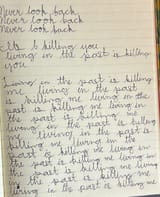 Never look back
Never look back
Never look back
Its killing you
living in the past is killing
you
Living in the past is killing
me living in the past
is killing me living in the
past is killing me living in
the past is killing me
living in the past is killing
me living in the past is
killing me living in the
past is killing me living in
the past is killing me living in
the past is killing me living
in the past is killing me
living in the past is killing me